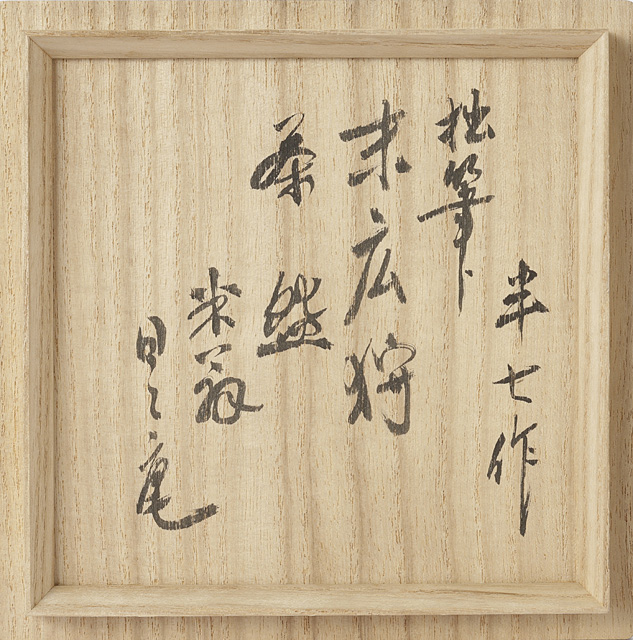 半七作
拙筆
末広狩
茶盌
米翁
日々庵